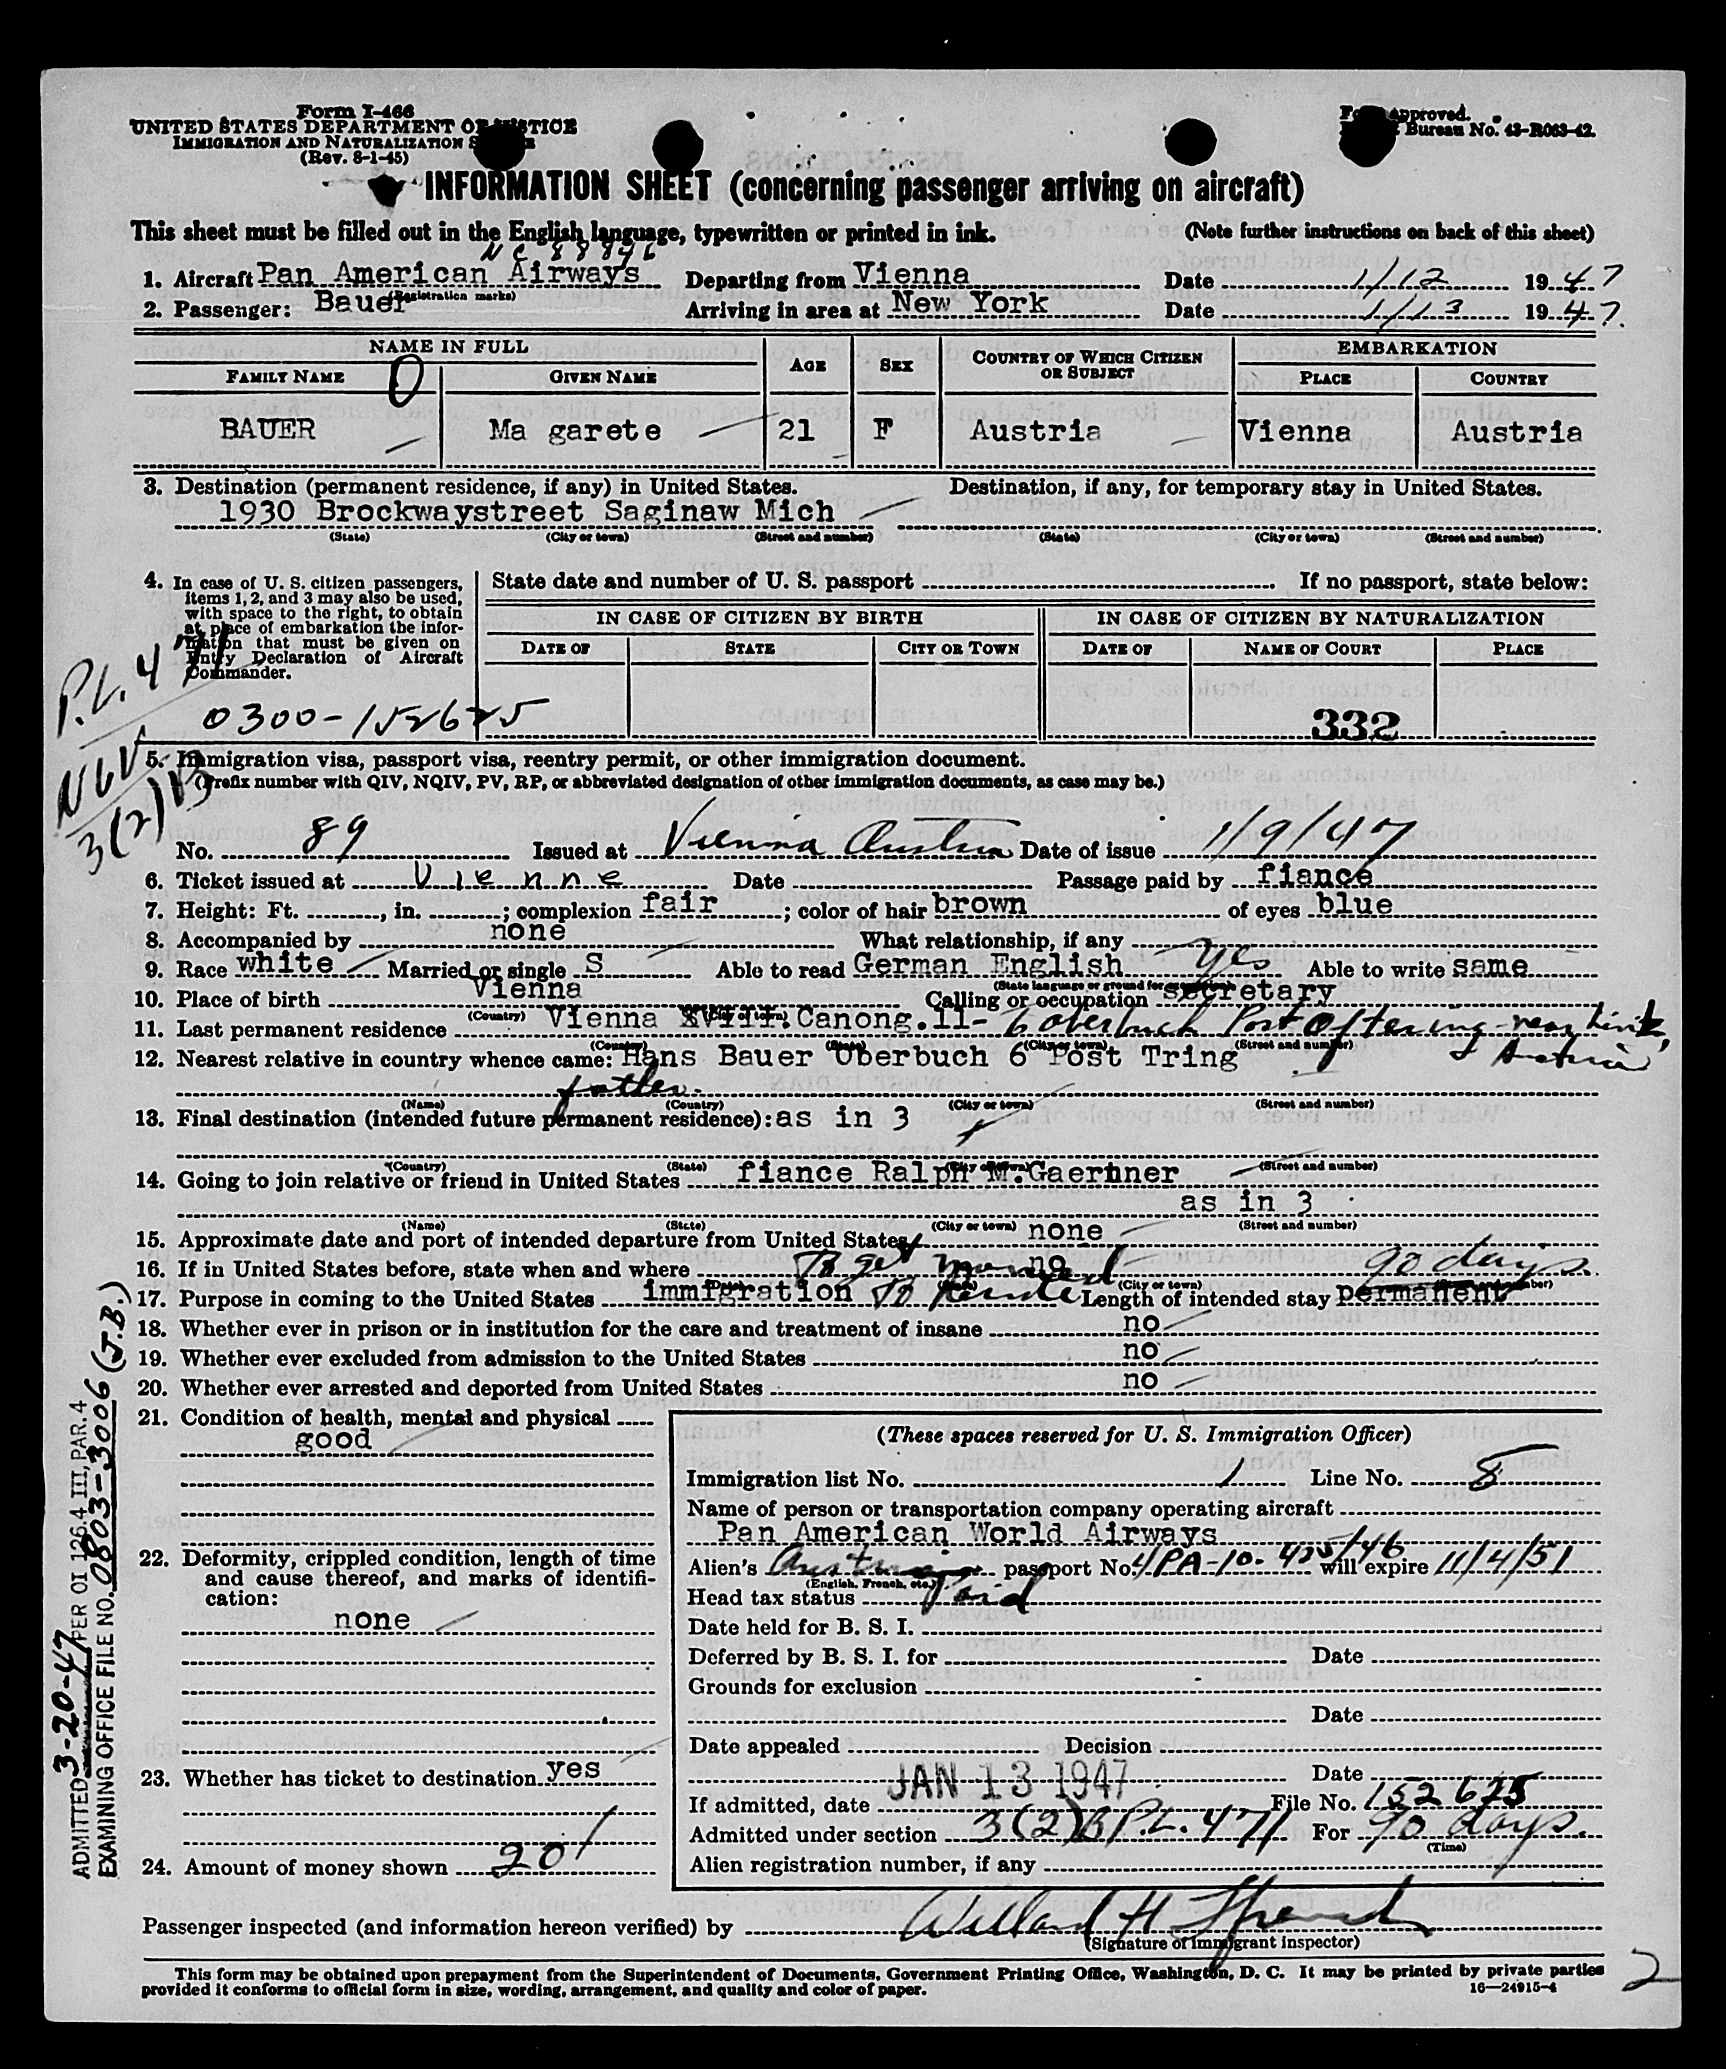 Form I-466
UNITED STATES DEPARTMENT OF JUSTICE
IMMIGRATION AND NATURALIZATION S
(Rev. 8-1-45)
Form approved.
Bureau No. 43-R063-42.
INFORMATION SHEET (concerning passenger arriving on aircraft)
This sheet must be filled out in the English language, typewritten or printed in ink. (Note further instructions on back of this sheet)
NC 88846
1. Aircraft Pan American Airways Departing from Vienna Date 1/12 1947
(Registration marks)
2. Passenger: Bauer Arriving in area at New York Date 1/13 1947.
NAME IN FULL AGE SEX COUNTRY OF WHICH CITIZEN OR SUBJECT EMBARKATION
FAMILY NAME GIVEN NAME PLACE COUNTRY
0
BAUER Ma garete 21 F Austria Vienna Austria
3. Destination (permanent residence, if any) in United States. Destination, if any, for temporary stay in United States.
1930 Brockwaystreet Saginaw Mich
(State) (City or town) (Street and number) (State) (City or town) (Street and number)
4. In case of U. S. citizen passengers, items 1, 2, and 3 may also be used, with space to the right, to obtain at place of embarkation the information that must be given on Entry Declaration of Aircraft Commander.
State date and number of U. S. passport If no passport, state below:
IN CASE OF CITIZEN BY BIRTH IN CASE OF CITIZEN BY NATURALIZATION
DATE OF STATE CITY OR TOWN DATE OF NAME OF COURT PLACE
P.L. 471
0300-152625
332
3(2)B
5. Immigration visa, passport visa, reentry permit, or other immigration document.
(Prefix number with QIV, NQIV, PV, RP, or abbreviated designation of other immigration documents, as case may be.)
No. 89 Issued at Vienna Austria Date of issue 1/9/47
6. Ticket issued at Vienne Date Passage paid by fiance
7. Height: Ft. , in. ; complexion fair ; color of hair brown of eyes blue
8. Accompanied by none What relationship, if any
9. Race white Married or single S Able to read German English yes Able to write same
(State language or ground for exemption)
10. Place of birth Vienna Calling or occupation secretary
(Country) (City or town)
11. Last permanent residence Vienna XVIII.Canong.11-
(Country) (State) (City or town) (Street and number)
12. Nearest relative in country whence came: Hans Bauer Oberbuch 6 Post Tring
father.
(Name) (Country) (City or town) (Street and number)
13. Final destination (intended future permanent residence): as in 3
(Country) (State) (City or town) (Street and number)
14. Going to join relative or friend in United States fiance Ralph M.Gaertner
as in 3
(Name) (State) (City or town) (Street and number)
15. Approximate date and port of intended departure from United States none
16. If in United States before, state when and where no
To get married 90 days
(Date) (State) (City or town) (Street and number)
17. Purpose in coming to the United States immigration To Reside Length of intended stay permanent
18. Whether ever in prison or in institution for the care and treatment of insane no
19. Whether ever excluded from admission to the United States no
20. Whether ever arrested and deported from United States no
21. Condition of health, mental and physical
good
22. Deformity, crippled condition, length of time and cause thereof, and marks of identification:
none
23. Whether has ticket to destination yes
24. Amount of money shown 20/
(These spaces reserved for U. S. Immigration Officer)
Immigration list No. 1 Line No. 8
Name of person or transportation company operating aircraft
Pan American World Airways
Alien's Austrian passport No. 425/46 will expire 11/4/51
(English, French, etc.)
Head tax status Paid
Date held for B. S. I.
Deferred by B. S. I. for Date
Grounds for exclusion
Date
Date appealed Decision
Date
If admitted, date JAN 13 1947 File No. 152625
Admitted under section 3(2)B P.L. 471 For 90 days.
(Time)
Alien registration number, if any
Passenger inspected (and information hereon verified) by Willard H
(Signature of immigrant inspector)
This form may be obtained upon prepayment from the Superintendent of Documents, Government Printing Office, Washington, D. C. It may be printed by private parties
provided it conforms to official form in size, wording, arrangement, and quality and color of paper.
16—24915-4
2
ADMITTED 3-20-47 PER OI 126.4 III, PAR. 4
EXAMINING OFFICE FILE NO. 0803-3006 (J.B.)